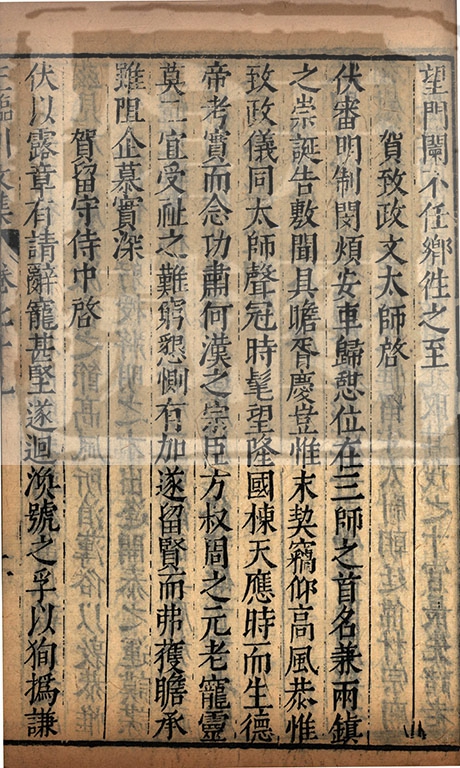 望門闌不任鄉往之至
賀致政文太師啓
伏審明制閔煩安車歸憇位在三師之首名兼兩鎮
之崇誕告敷聞具瞻胥慶豈惟末契竊仰高風恭惟
致政儀同太師聲冠時髦望隆國棟天應時而生德
帝考實而念功肅何漢之宗臣方叔周之元老寵靈
莫二宜受祉之難窮懇惻有加遂留賢而弗獲瞻承
雖阻企慕實深
賀留守侍中啓
伏以露章有請辭寵甚堅遂迴渙號之孚以狥撝謙
王臨川文集 卷七十九